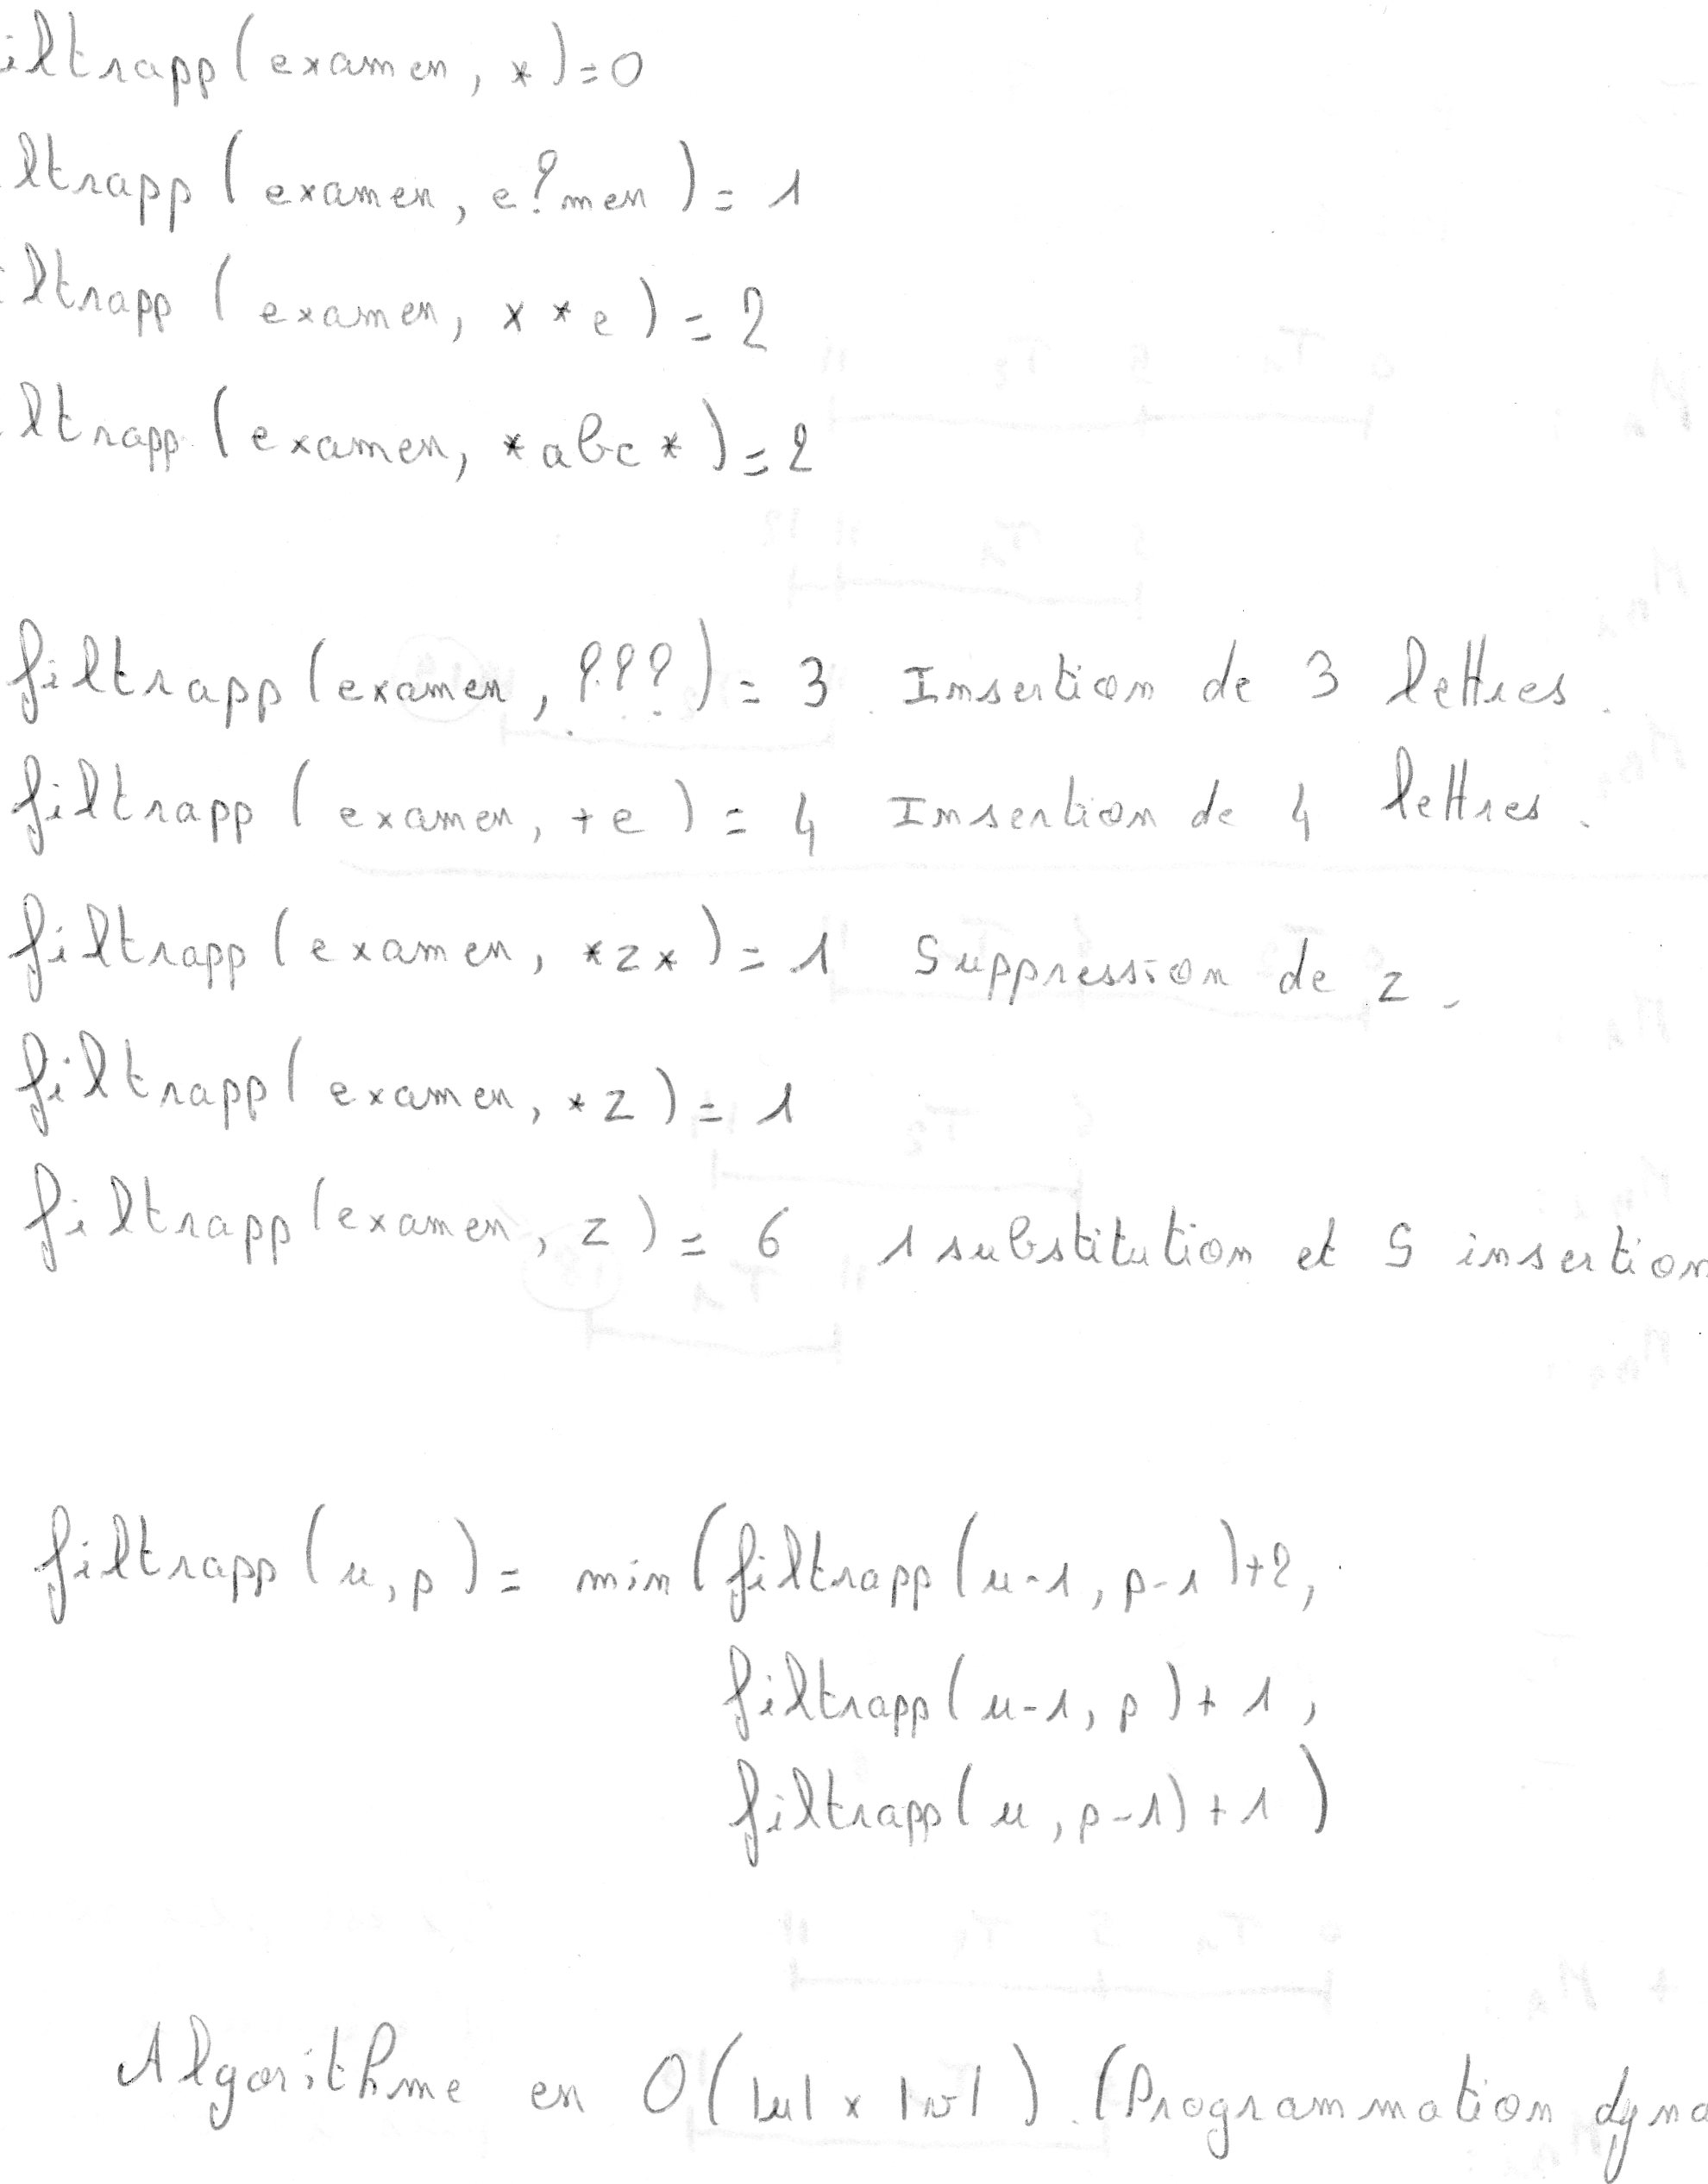 iltrapp(examen, *)=0
ltrapp(examen, e?men)=1
iltrapp(examen, x*e)=2
ltrapp(examen, *abc*)=2
filtrapp(examen, ???)=3 Insertion de 3 lettres.
filtrapp(examen, +e)=4 Insertion de 4 lettres.
filtrapp(examen, *z*)=1 Suppression de z.
filtrapp(examen, *z)=1
filtrapp(examen, z)=6 1 substitution et 5 insertion
filtrapp(u,p)= min(filtrapp(u-1, p-1)+2,
filtrapp(u-1, p)+1,
filtrapp(u, p-1)+1)
Algorithme en O(|u| x |v|). (Programmation dyna